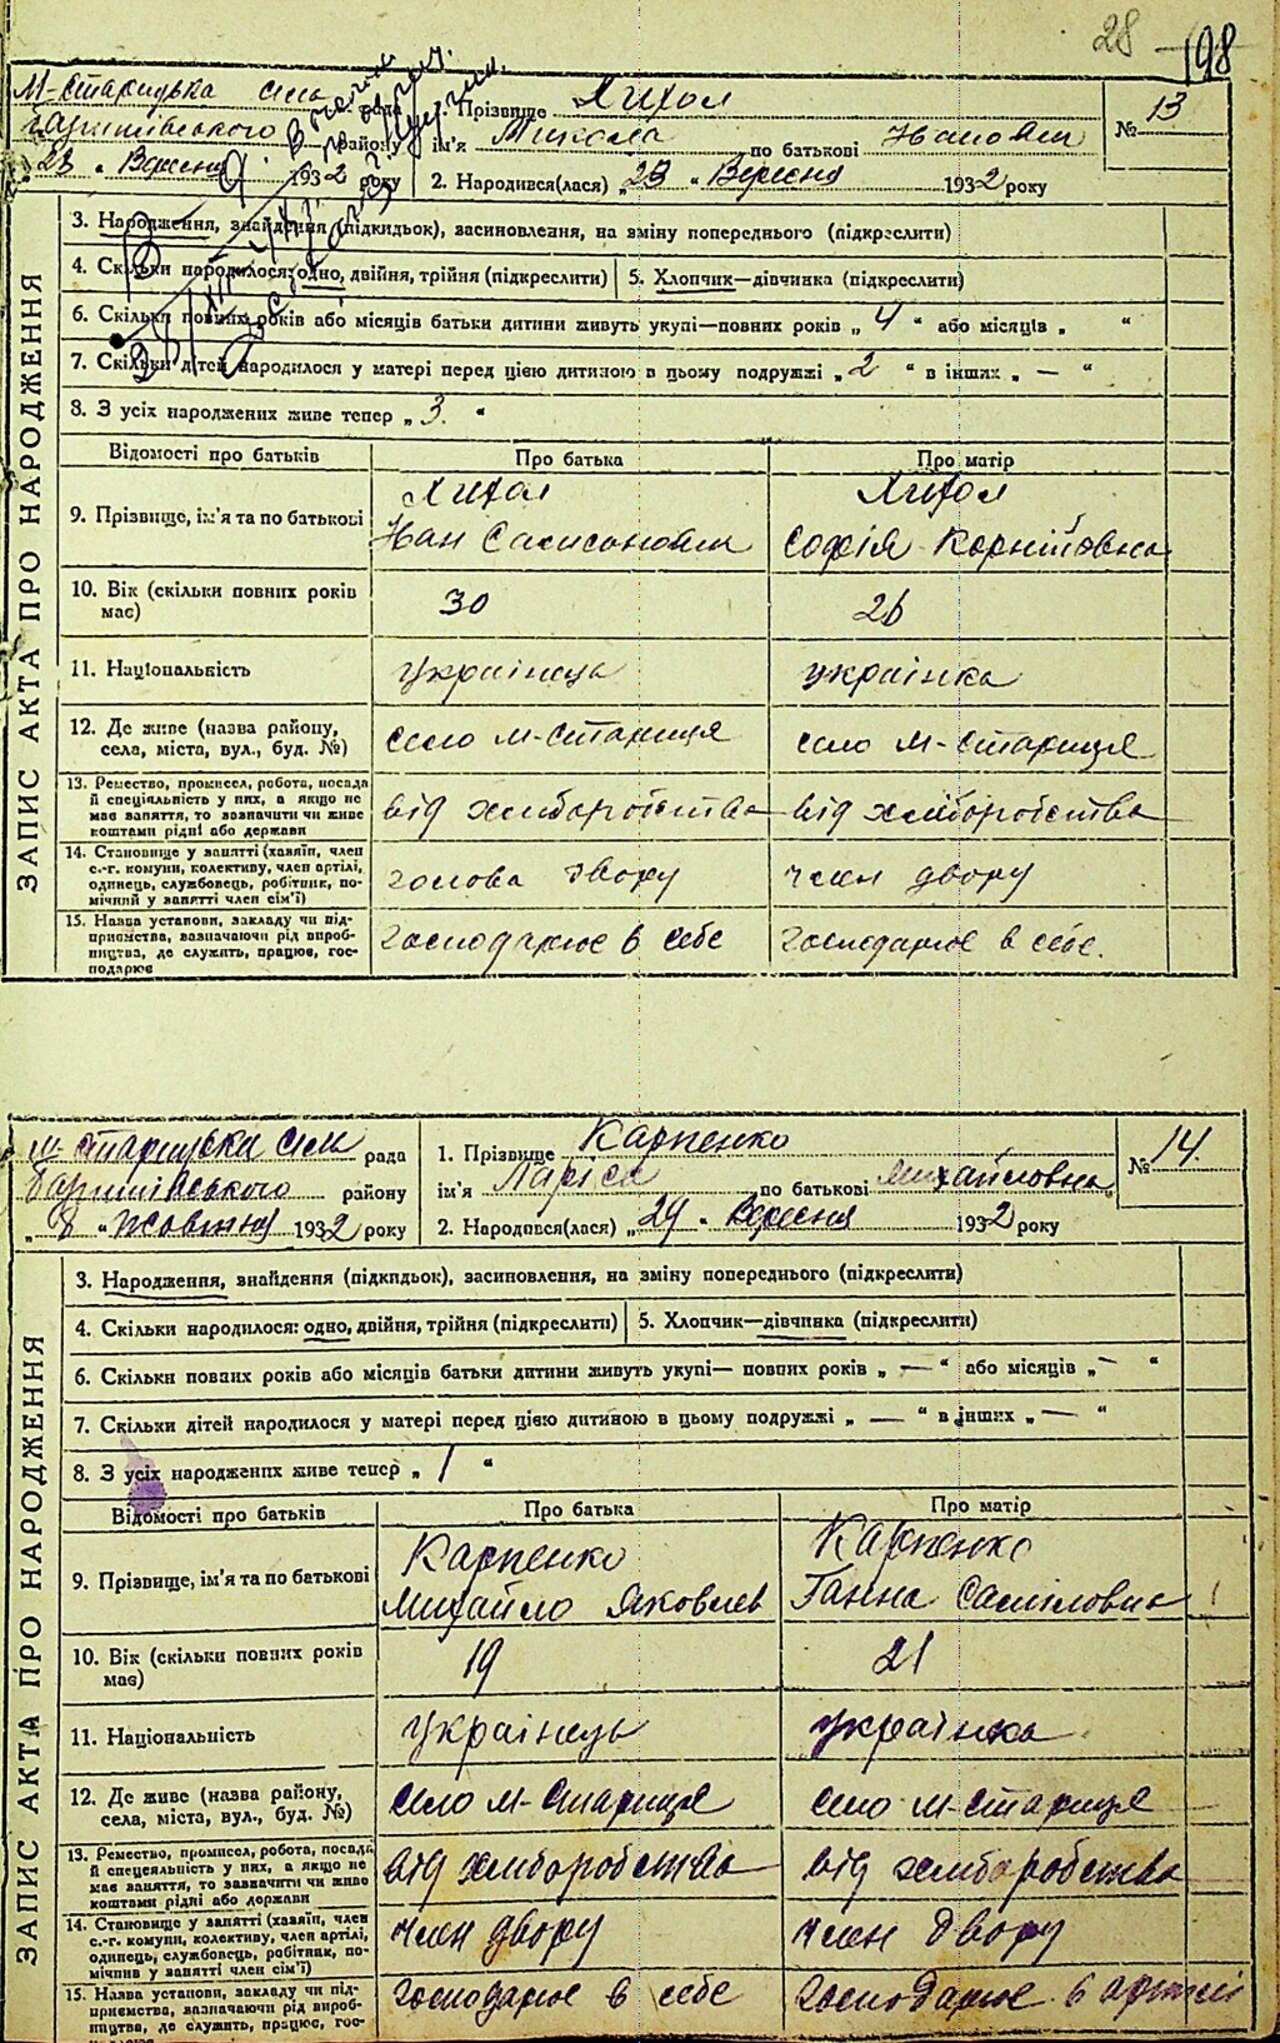 28 198
М-Старицька сільська рада
Баришівського району
„ 28 „ Вересня 1932 року
1. Прізвище Лихол
ім'я Микола по батькові Іванович
2. Народився(лася) „ 23 „ Вересня 1932 року
№ 13
ЗАПИС АКТА ПРО НАРОДЖЕННЯ
3. Народження, знайдення (підкидьок), засиновлення, на зміну попереднього (підкреслити)
4. Скільки народилося: одно, двійня, трійня (підкреслити) 5. Хлопчик—дівчинка (підкреслити)
6. Скільки повних років або місяців батьки дитини живуть укупі—повних років „ 4 “ або місяців „ “
7. Скільки дітей народилося у матері перед цією дитиною в цьому подружжі „ 2 “ в інших „ — “
8. З усіх народжених живе тепер „ 3. “
Відомості про батьків Про батька Про матір
9. Прізвище, ім'я та по батькові
Лихол
Іван Самсонович
Лихол
Софія Корніївна
10. Вік (скільки повних років
має)
30 26
11. Національність українець українка
12. Де живе (назва району,
села, міста, вул., буд. №)
село М-Стариця село М-Стариця
13. Ремество, промисел, робота, посада
й спеціяльність у них, а якщо не
має заняття, то зазначити чи живе
коштами рідні або держави
від хліборобства від хліборобства
14. Становище у занятті (хазяїн, член
с.-г. комуни, колективу, член артілі,
одинець, службовець, робітник, по-
мічний у занятті член сім'ї)
голова двору член двору
15. Назва установи, закладу чи під-
приємства, зазначаючи рід вироб-
ництва, де служить, працює, гос-
подарює
господарює в себе господарює в себе.
М-Старицька сільс рада
Баришівського району
„ 8 „ Жовтня 1932 року
1. Прізвище Карпенко
ім'я Ларіса по батькові Михайловна
2. Народився(лася) „ 29 „ Вересня 1932 року
№ 14.
ЗАПИС АКТА ПРО НАРОДЖЕННЯ
3. Народження, знайдення (підкидьок), засиновлення, на зміну попереднього (підкреслити)
4. Скільки народилося: одно, двійня, трійня (підкреслити) 5. Хлопчик—дівчинка (підкреслити)
6. Скільки повних років або місяців батьки дитини живуть укупі— повних років „ — “ або місяців „ — “
7. Скільки дітей народилося у матері перед цією дитиною в цьому подружжі „ — “ в інших „ — “
8. З усіх народжених живе тепер „ 1 “
Відомості про батьків Про батька Про матір
9. Прізвище, ім'я та по батькові
Карпенко
Михайло Яковлев
Карпенко
Ганна Самісловна
10. Вік (скільки повних років
має)
19 21
11. Національність українець українка
12. Де живе (назва району,
села, міста, вул., буд. №)
село М-Стариця село М-Стариця
13. Ремество, промисел, робота, посада
й спецеяльність у них, а якщо не
має заняття, то зазначити чи живе
коштами рідні або держави
від хліборобства від хліборобства
14. Становище у занятті (хазяїн, член
с.-г. комуни, колективу, член артілі,
одинець, службовець, робітник, по-
мічник у занятті член сім'ї)
член двору член двору
15. Назва установи, закладу чи під-
приємства, зазначаючи рід вироб-
ництва, де служить, працює, гос-
господарює в себе господарює в артілі